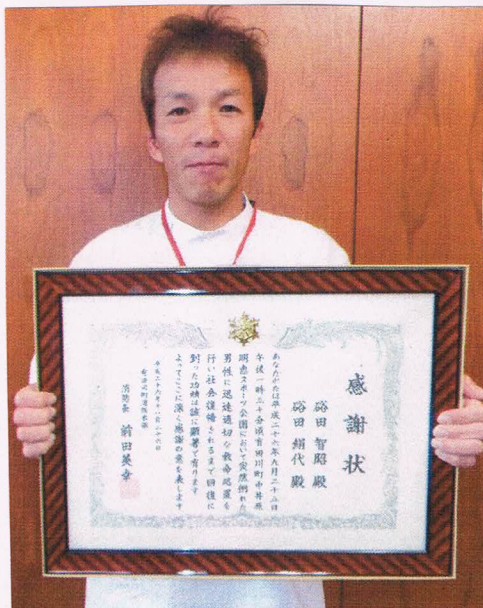 感謝状
硲田 智昭 殿
硲田 絹代 殿
あなたがたは平成二十六年九月二十三日
午後一時三十分頃有田川町中井原
明恵スポーツ公園において突然倒れた
男性に迅速適切な救命処置を
行い社会復帰されるまで回復に
到った功績は誠に顕著で有ります
よってここに深く感謝の意を表します
平成二十六年十一月二十六日
有田川町消防本部
消防長 前田英幸